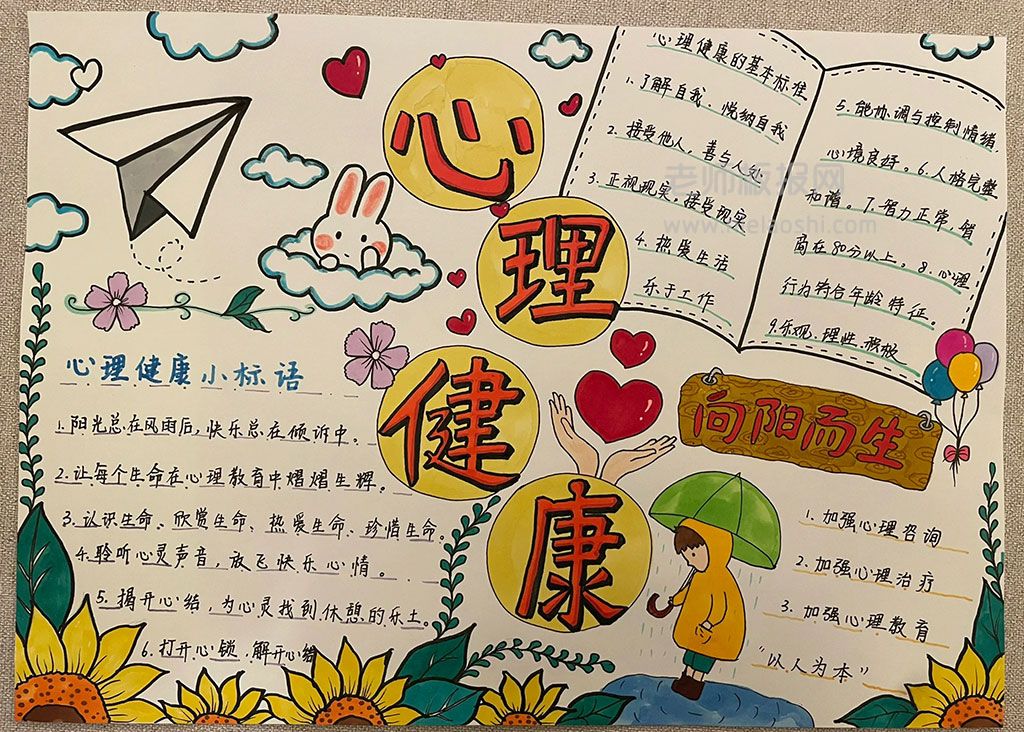 心理健康
心理健康的基本标准
1.了解自我.悦纳自我
2.接受他人,善与人处
3.正视现实,接受现实
4.热爱生活
乐于工作
5.能协调与控制情绪,
心境良好。6.人格完整
和谐。7.智力正常,智
商在80分以上。8.心理
行为符合年龄特征。
9.乐观.理性.积极
老师板报网
心理健康小标语
1.阳光总在风雨后,快乐总在倾诉中。
2.让每个生命在心理教育中熠熠生辉。
3.认识生命、欣赏生命、热爱生命、珍惜生命。
4.聆听心灵声音,放飞快乐心情。
5.揭开心结,为心灵找到休憩的乐土。
6.打开心锁.解开心结
向阳而生
1.加强心理咨询
2.加强心理治疗
3.加强心理教育
"以人为本"